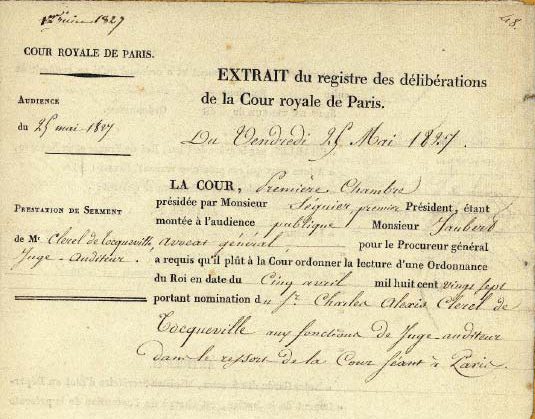 1er juin 1827
48.
COUR ROYALE DE PARIS.
AUDIENCE
du 25 mai 1827
PRESTATION DE SERMENT
de Mr Clerel de Tocqueville,
Juge-Auditeur.
EXTRAIT du registre des délibérations
de la Cour royale de Paris.
Du Vendredi 25 Mai 1827.
LA COUR, Première Chambre
présidée par Monsieur Séguier, premier Président, étant
montée à l'audience publique Monsieur Jaubert
avocat général, pour le Procureur général
a requis qu'il plût à la Cour ordonner la lecture d'une Ordonnance
du Roi en date du Cinq avril mil huit cent vingt sept
portant nomination du Sr. Charles Alexis Clerel de
Tocqueville aux fonctions de Juge-auditeur
dans le ressort de la Cour séant à Paris.